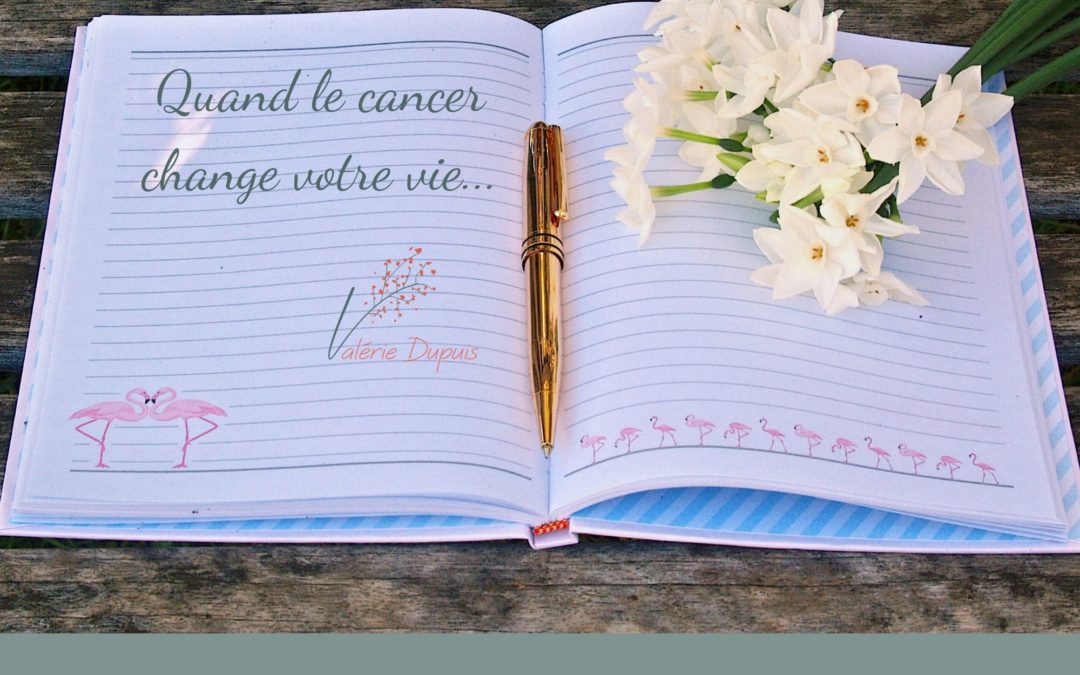 Quand le cancer
change votre vie...
Valérie Dupuis